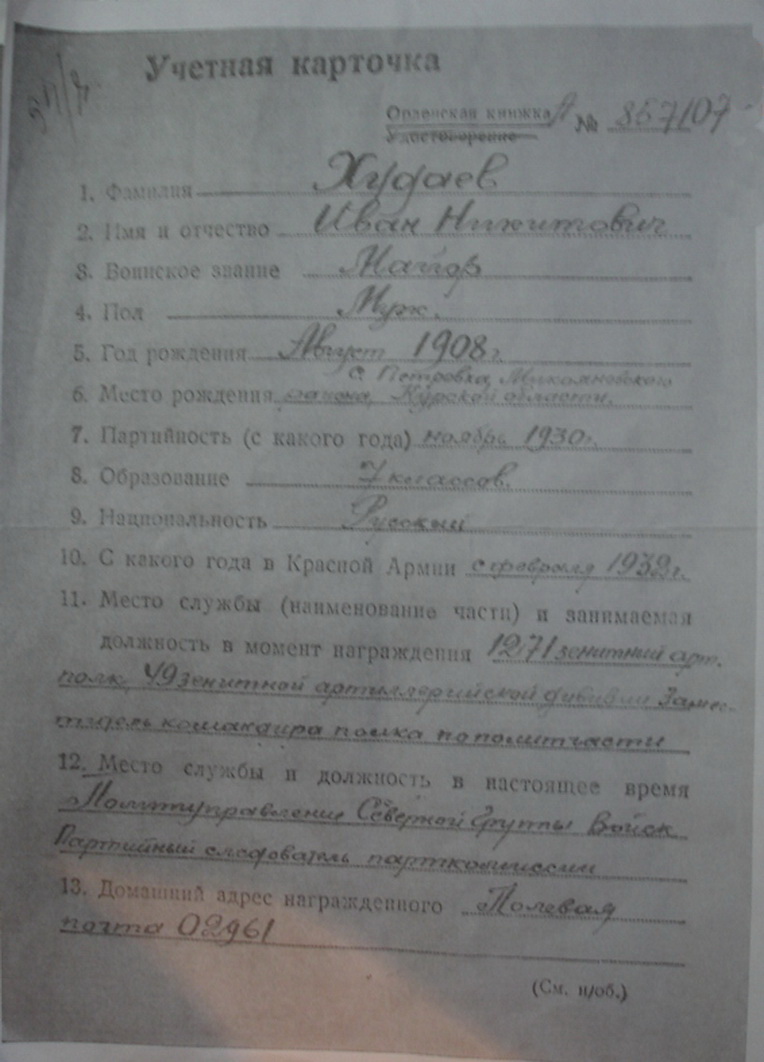 Учетная карточка
Орденская книжка А № 857107
Удостоверение
1. Фамилия Худаев
2. Имя и отчество Иван Никитович
3. Воинское звание Майор
4. Пол Муж.
5. Год рождения Август 1908 г.
с. Петровка, Микояновского
6. Место рождения района, Курской области.
7. Партийность (с какого года) ноябрь 1930 г.
8. Образование 7 классов.
9. Национальность Русский
10. С какого года в Красной Армии с февраля 1932 г.
11. Место службы (наименование части) и занимаемая
должность в момент награждения 1271 зенитный арт.
полк, 49 зенитной артиллерийской дивизии Замес-
титель командира полка по политчасти
12. Место службы и должность в настоящее время
Политуправление Северной Группы Войск
Партийный следователь парткомиссии
13. Домашний адрес награжденного Полевая
почта 02961
(См. н/об.)